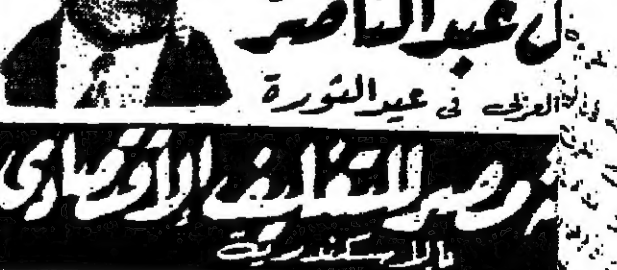 ل عبد الناصر
العربى فى عيد الثورة
مصر للتغليف الاقتصادى
بالاسكندرية